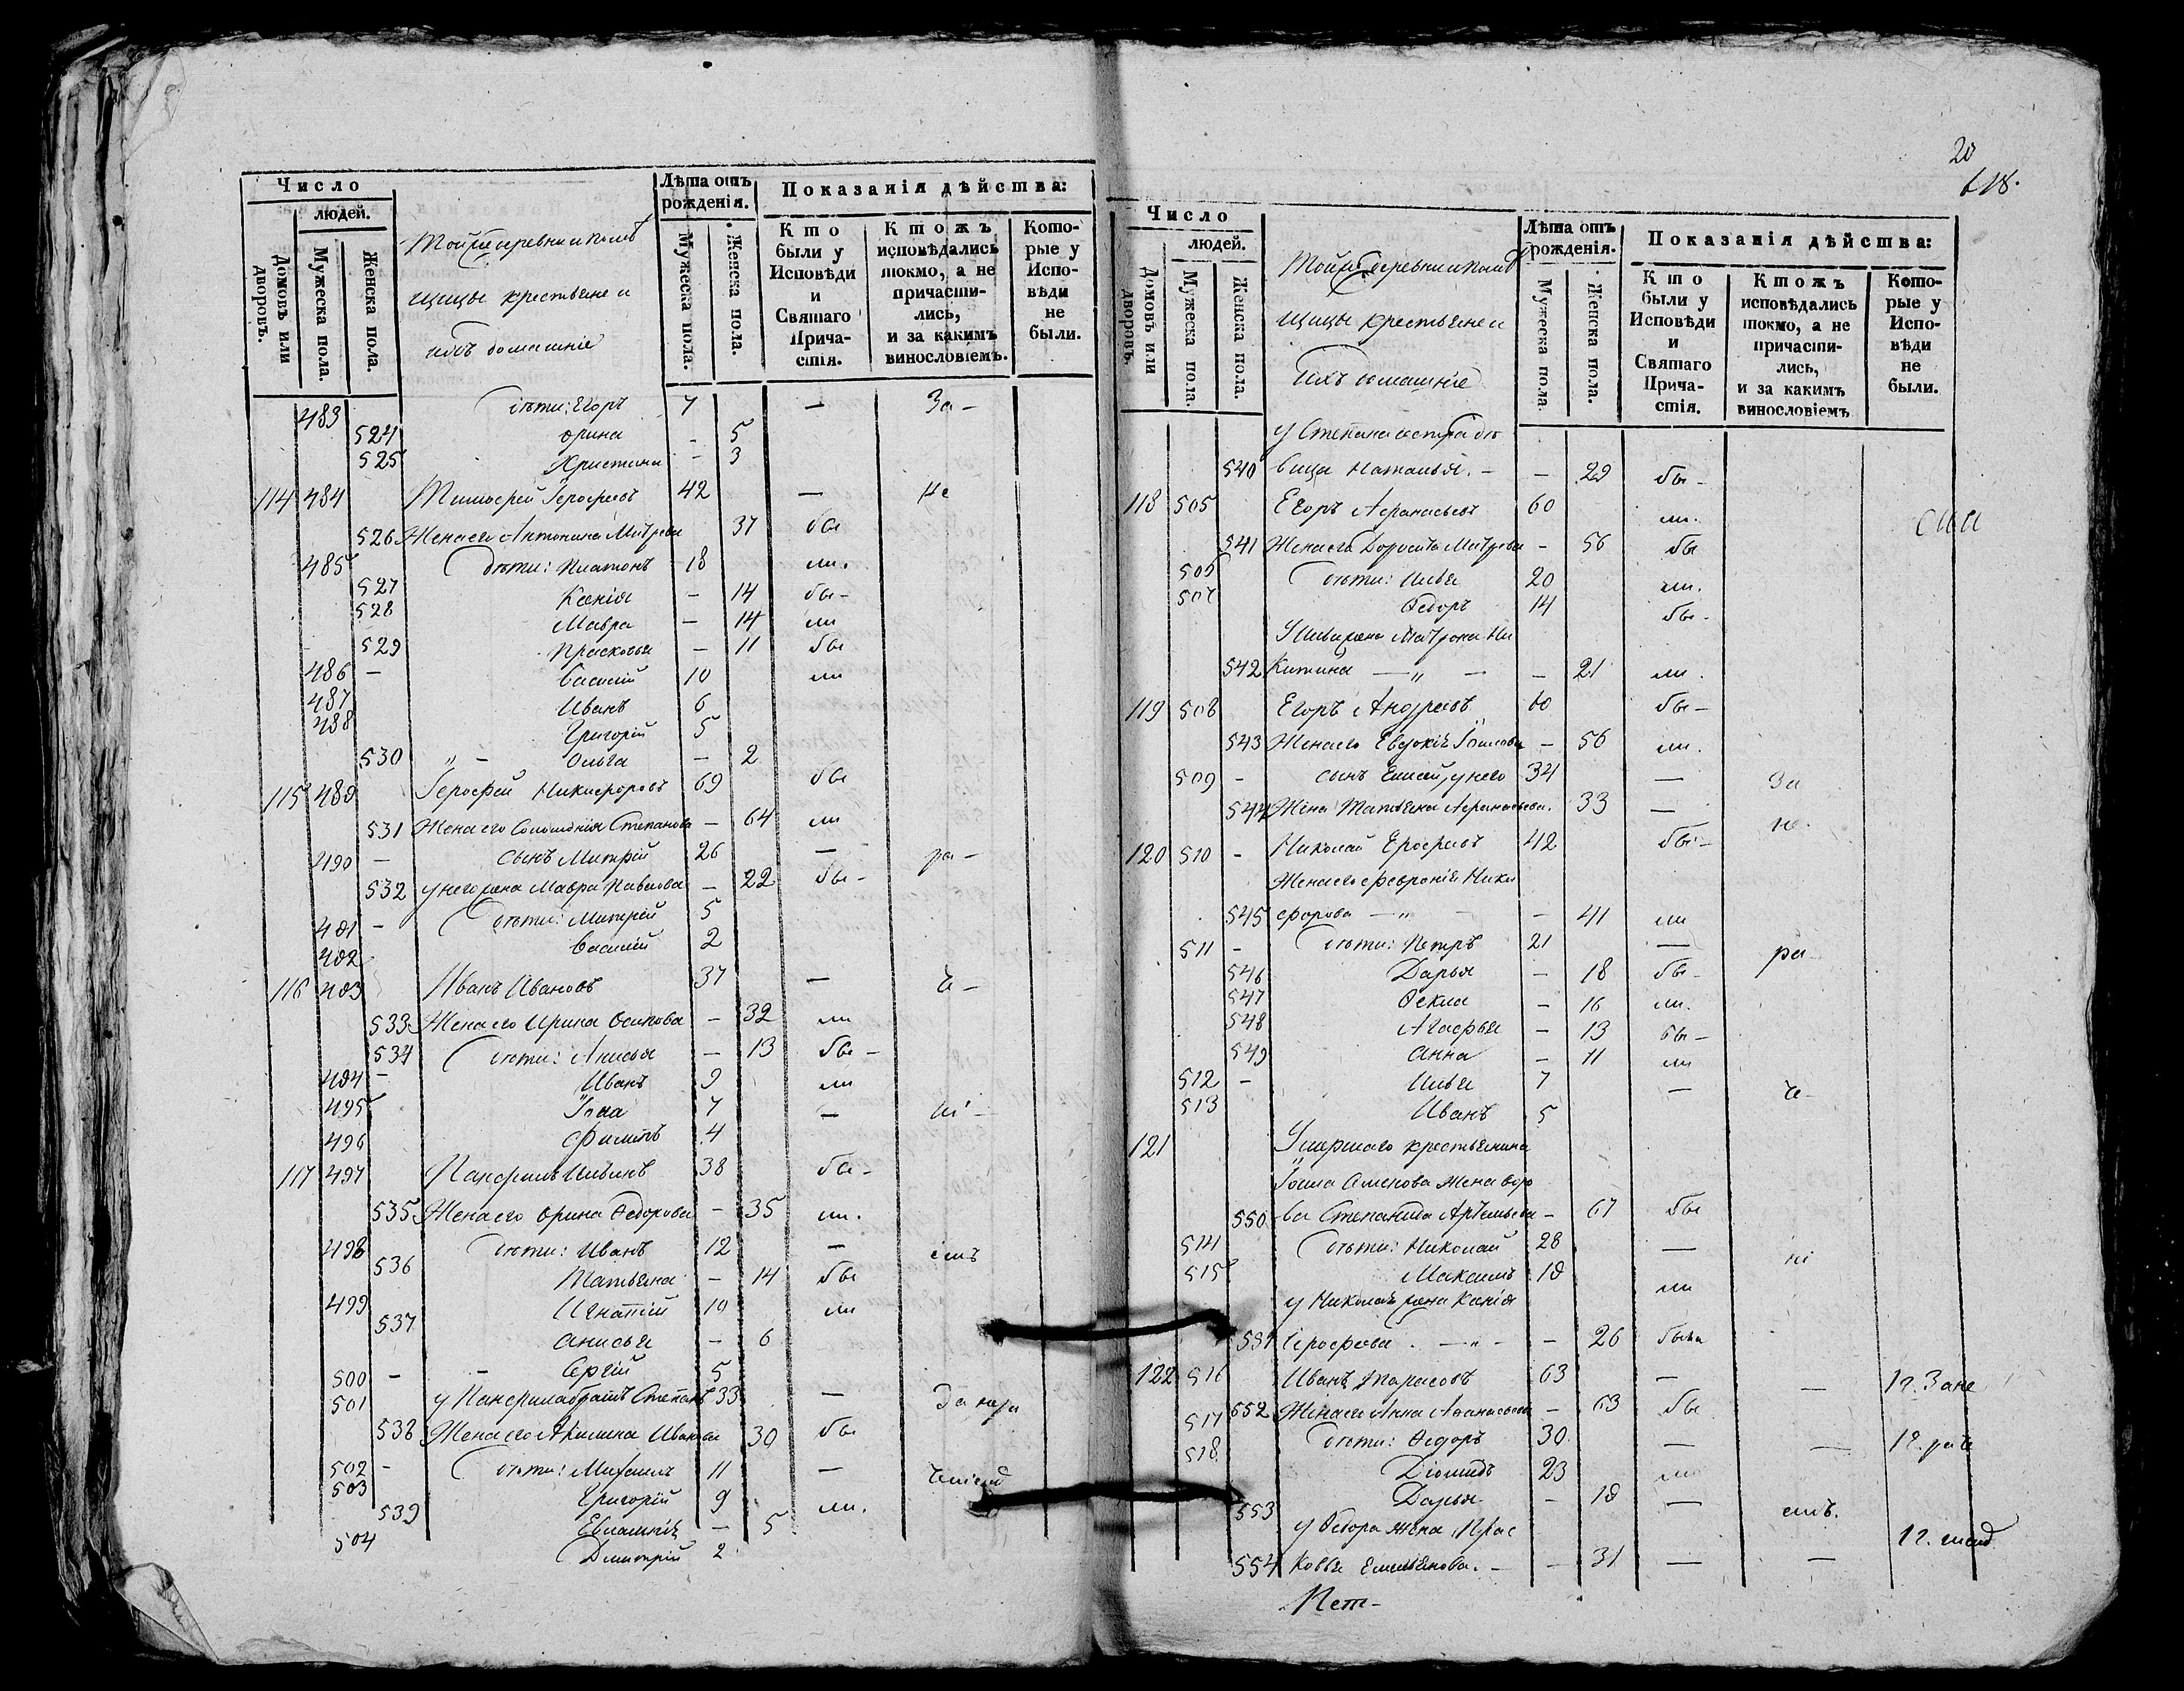 Число
людей.
Домовъ или дворовъ.
Мужеска пола.
Женска пола.
Той же деревни и помѣ
щицы крестьяне и
ихъ домашніе
Лѣта отъ рожденія.
Мужеска пола.
Женска пола.
Показанія дѣйства:
Кто были у Исповѣди и Святаго Причастія.
Ктожъ исповѣдались токмо, а не причастились, и за какимъ винословіемъ.
Которые у Исповѣди не были.
483 дѣти: Егоръ 7 — За-
524 Орина - 5
525 Христина - 3
114 484 Тимофей Герофеевъ 42 — не
526 Жена его Антонина Митрева 37 бы
485 дѣти: Платонъ 18 ли.
527 Ксенія - 14 бы-
528 Мавра - 14 ли
529 Прасковья - 11 бы
486 - Василій 10 ли
487 Иванъ 6
488 Григорій 5
530 " - Ольга - 2
115 489 Герофей Никифоровъ 69 бы
531 Жена его Соломонія Степанова - 64 ли
490 - сынъ Митрей 26 — ра-
532 у него жена Мавра Павлова - 22 бы-
491 - дѣти: Митрей 5
492 Василій 2
116 493 Иванъ Ивановъ 37 — че-
533 Жена его Ирина Осипова - 32 ли
534 дѣти: Анисья - 13 бы-
494 - Иванъ 9 ли
495 Іона 7 — ні-
496 Филипъ 4
117 497 Панфилъ Ильинъ 38 бы-
535 Жена его Орина Ѳедорова - 35 ли.
498 дѣти: Иванъ 12 — емъ
536 Татьяна - 14 бы
499 Игнатій 10 ли
537 Анисья - 6
500 - - Сергій 5
501 у Панфила братъ Степанъ 33 — За нера
538 Жена его Акилина Иванова 30 бы
502 - дѣти: Михаилъ 11 — ченіемъ
503 Григорій 9 ли.
539 Евлампія - 5
504 Димитрій 2
20
618.
Число
людей.
Домовъ или дворовъ.
Мужеска пола.
Женска пола.
Той же деревни и помѣ
щицы крестьяне и
ихъ домашніе
Лѣта отъ рожденія.
Мужеска пола.
Женска пола.
Показанія дѣйства:
Кто были у Исповѣди и Святаго Причастія.
Ктожъ исповѣдались токмо, а не причастились, и за какимъ винословіемъ
Которые у Исповѣди не были.
у Степана сестра дѣ
540 вица Наталья. - - 29 бы-
118 505 Егоръ Афанасьевъ 60 ли.
541 Жена его Доросита Митрева - 56 бы
506 дѣти: Илья 20 ли.
507 Ѳедоръ 14 бы.
У Ильи жена Матрона Ни
542 китина — " - - 21 ли.
119 508 Егоръ Андреевъ 60 бы-
543 Жена его Евдокія Іоилова - 56 ли.
509 - сынъ Елисей, у него 34 — За
544 Жена Татьяна Афанасьева. 33 —
не.
120 510 - Николай Ерофеевъ 42 бы-
Жена его Февронія Ники
545 форова — " - - 41 ли
511 - дѣти: Петръ 21 — ра-
546 Дарья - 18 бы-
547 Ѳекла - 16 ли.
548 Агафья - 13 бы-
549 Анна - 11 ли
512 - Илья 7 — че-
513 Иванъ 5
121 Умершаго крестьянина
Іоила Семенова жена вдо
550 ва Степанида Артемьева - 67 бы
514 дѣти: Николай 28 — ні
515 Максимъ 18 ли
у Николая жена Ксенія
551 Ерофеева. — " - - 26 была
122 516 Иванъ Тарасовъ 63 — — 12. За не
552 Жена его Анна Афанасьева - 63 бы
517 дѣти: Ѳедоръ 30 — — 12. раче
518 Діомидъ 23 ли
553 Дарья - 18 — емъ.
у Ѳедора жена Прас
554 ковья Емельянова. - - 31 — — 12. ніемъ
Пет-